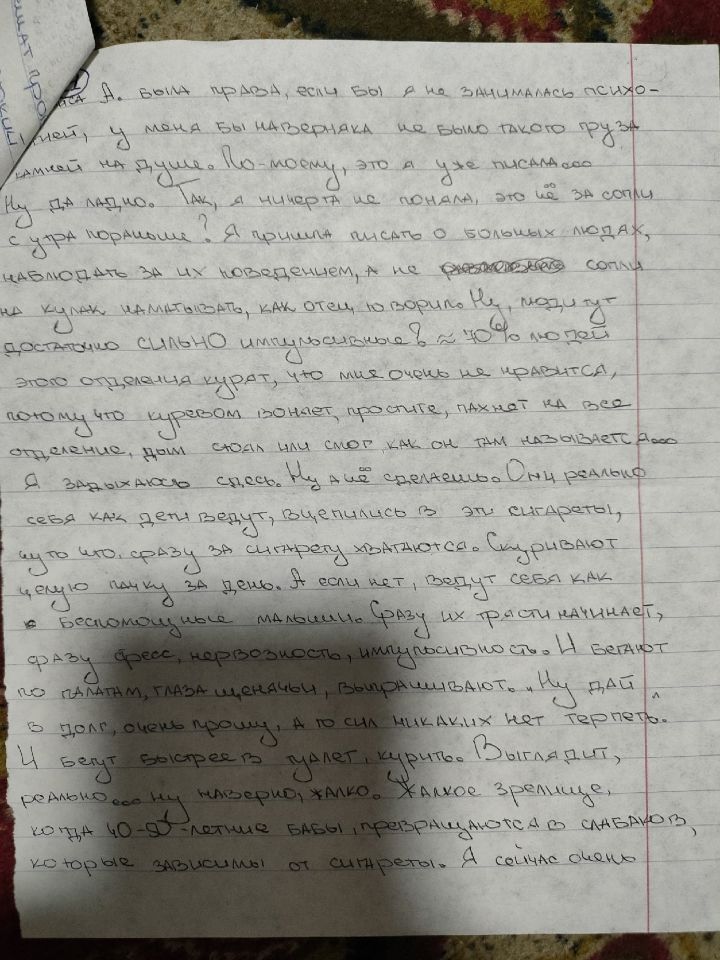 А. была права, если бы я не занималась психо-
гией, у меня бы наверняка не было такого груза
камней на душе. По-моему, это я уже писала...
Ну да ладно. Так, я ничерта не поняла, это чё за сопли
с утра пораньше? Я пришла писать о больных людях,
наблюдать за их поведением, а не сопли
на кулак наматывать, как отец говорил. Ну, люди тут
достаточно сильно импульсивные? ≈ 70% людей
этого отделения курят, что мне очень не нравится,
потому что куревом воняет, простите, пахнет на все
отделение, дым стоял или смог, как он там называется...
Я задыхаюсь здесь. Ну а чё сделаешь. Они реально
себя как дети ведут, вцепились в эти сигареты,
чуто что, сразу за сигарету хватаются. Скуривают
целую пачку за день. А если нет, ведут себя как
беспомощные малыши. Сразу их трясти начинает,
сразу стресс, нервозность, импульсивность. И бегают
по палатам, глаза щенячьи, выпрашивают. "Ну дай
в долг, очень прошу, а то сил никаких нет терпеть".
И бегут быстрее в туалет, курить. Выглядит,
реально... ну наверно, жалко. Жалкое зрелище,
когда 40-50-летние бабы, превращаются в слабаков,
которые зависимы от сигареты. Я сейчас очень